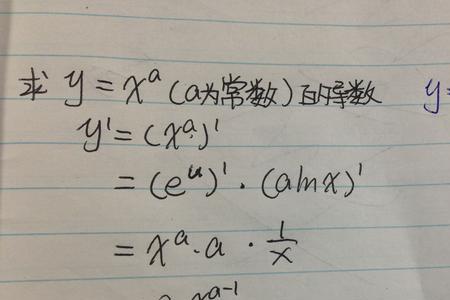 求 y = xᵃ (a为常数) 的导数 y=
y' = (xᵃ)'
= (eᵘ)' · (alnx)'
= xᵃ · a · 1/x